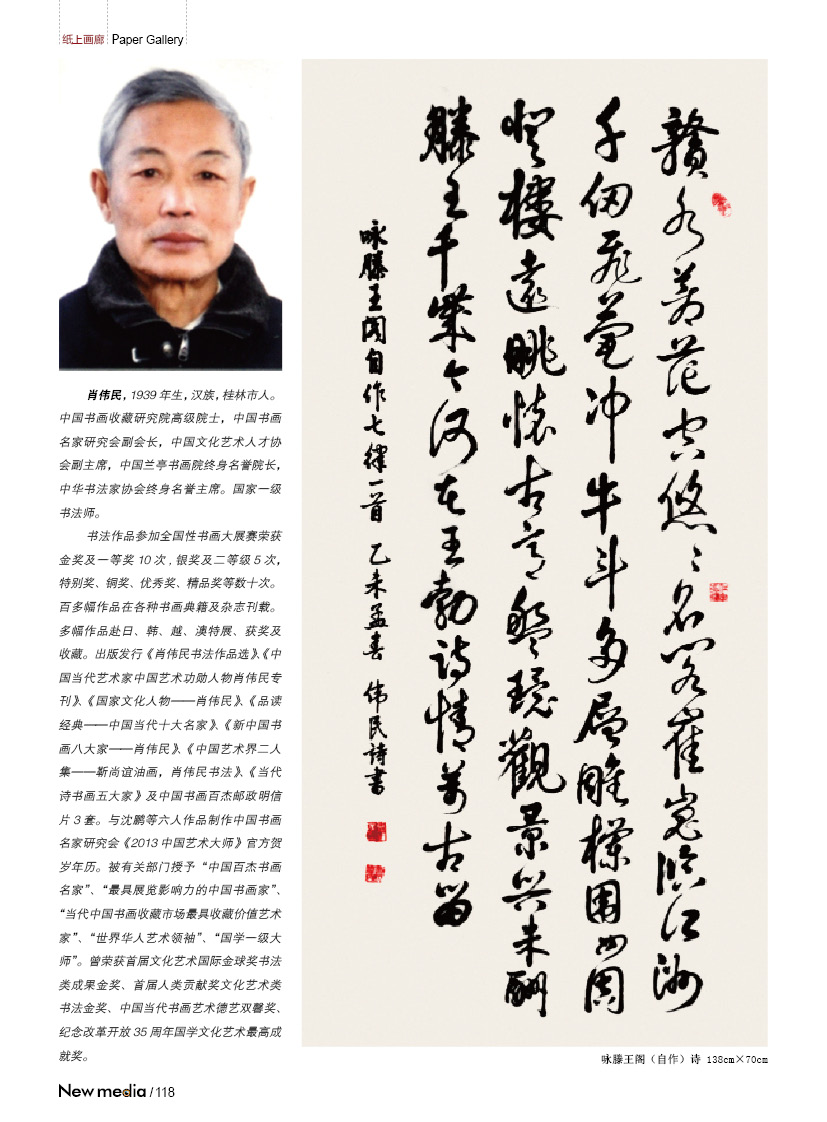 纸上画廊 Paper Gallery
肖伟民，1939 年生，汉族，桂林市人。
中国书画收藏研究院高级院士，中国书画
名家研究会副会长，中国文化艺术人才协
会副主席，中国兰亭书画院终身名誉院长，
中华书法家协会终身名誉主席。国家一级
书法师。
书法作品参加全国性书画大展赛荣获
金奖及一等奖 10 次 , 银奖及二等级 5 次，
特别奖、铜奖、优秀奖、精品奖等数十次。
百多幅作品在各种书画典籍及杂志刊载。
多幅作品赴日、韩、越、澳特展、获奖及
收藏。出版发行《肖伟民书法作品选》、《中
国当代艺术家中国艺术功勋人物肖伟民专
刊》、《国家文化人物——肖伟民》、《品读
经典——中国当代十大名家》、《新中国书
画八大家——肖伟民》、《中国艺术界二人
集——靳尚谊油画，肖伟民书法》、《当代
诗书画五大家》及中国书画百杰邮政明信
片 3 套。与沈鹏等六人作品制作中国书画
名家研究会《2013 中国艺术大师》官方贺
岁年历。被有关部门授予“中国百杰书画
名家”、“最具展览影响力的中国书画家”、
“当代中国书画收藏市场最具收藏价值艺术
家”、“世界华人艺术领袖”、“国学一级大
师”。曾荣获首届文化艺术国际金球奖书法
类成果金奖、首届人类贡献奖文化艺术类
书法金奖、中国当代书画艺术德艺双馨奖、
纪念改革开放 35 周年国学文化艺术最高成
就奖。
赣水苍茫空悠悠名阁崔嵬临江洲
千仞飞甍冲牛斗多层雕檪围四周
登楼远眺怀古意盤環觀景兴未酬
滕王千業今何在王勃诗情万古留
咏滕王阁自作七律一首 乙未孟春 伟民诗书
咏滕王阁（自作）诗 138cm×70cm
New media / 118